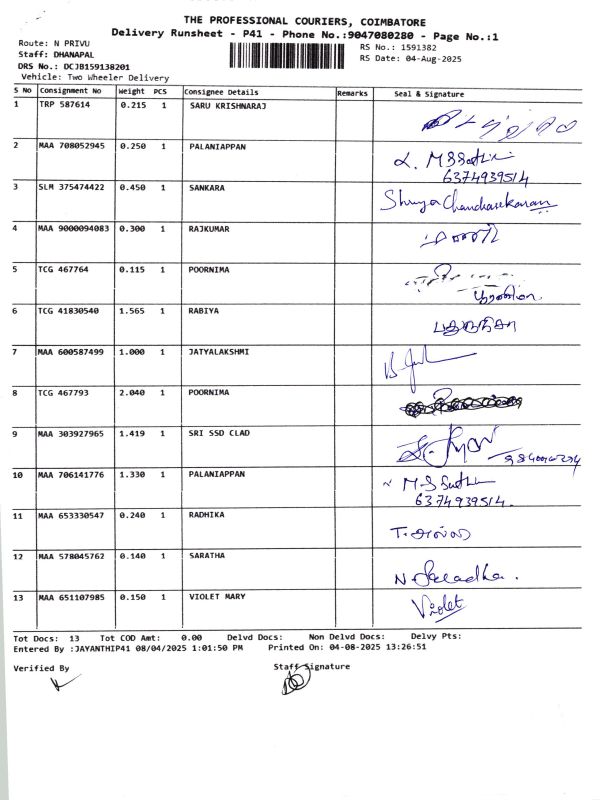 THE PROFESSIONAL COURIERS, COIMBATORE
Delivery Runsheet - P41 - Phone No.:9047080280 - Page No.:1
Route: N PRIVU
RS No.: 1591382
Staff: DHANAPAL
RS Date: 04-Aug-2025
DRS No.: DCJB159138201
Vehicle: Two Wheeler Delivery
S No Consignment No Weight PCS Consignee Details Remarks Seal & Signature
1 TRP 587614 0.215 1 SARU KRISHNARAJ
2 MAA 708052945 0.250 1 PALANIAPPAN
6374939514
3 SLM 375474422 0.450 1 SANKARA Shreya Chandrasekaran
4 MAA 9000094083 0.300 1 RAJKUMAR
5 TCG 467764 0.115 1 POORNIMA
பூரணிமா
6 TCG 41830540 1.565 1 RABIYA
7 MAA 600587499 1.000 1 JATYALAKSHMI
8 TCG 467793 2.040 1 POORNIMA
9 MAA 303927965 1.419 1 SRI SSD CLAD
10 MAA 706141776 1.330 1 PALANIAPPAN
6374939514.
11 MAA 653330547 0.240 1 RADHIKA
12 MAA 578045762 0.140 1 SARATHA N
13 MAA 651107985 0.150 1 VIOLET MARY Violet
Tot Docs: 13 Tot COD Amt: 0.00 Delvd Docs: Non Delvd Docs: Delvy Pts:
Entered By :JAYANTHIP41 08/04/2025 1:01:50 PM Printed On: 04-08-2025 13:26:51
Verified By Staff Signature